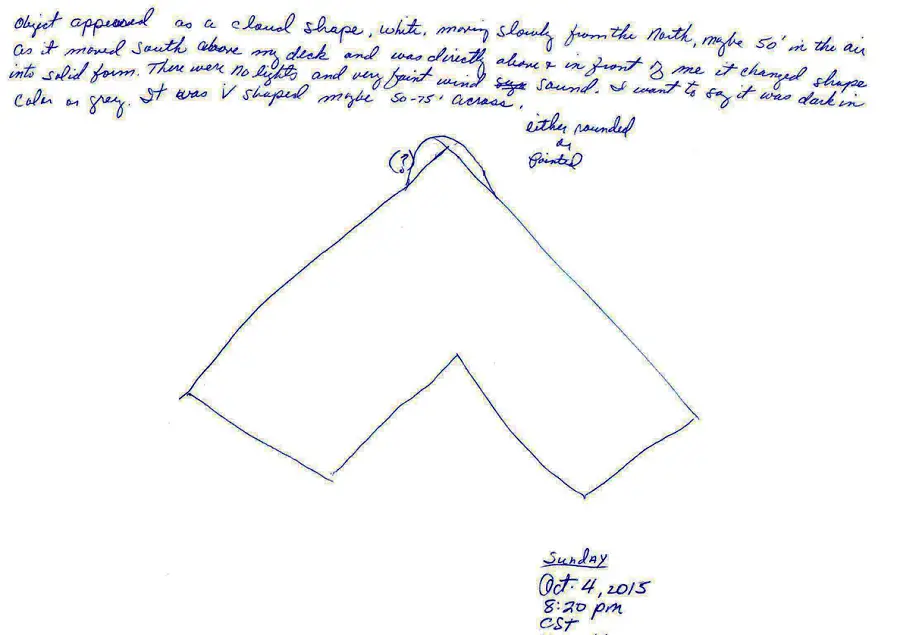 Object appeared as a cloud shape, white, moving slowly from the North, maybe 50' in the air
as it moved south above my deck and was directly above & in front of me it changed shape
into solid form. There were no lights and very faint wind sound. I want to say it was dark in
color or gray. It was V shaped maybe 50-75' across.
either rounded
or
pointed
(?)
Sunday
Oct. 4, 2015
8:20 pm
CST